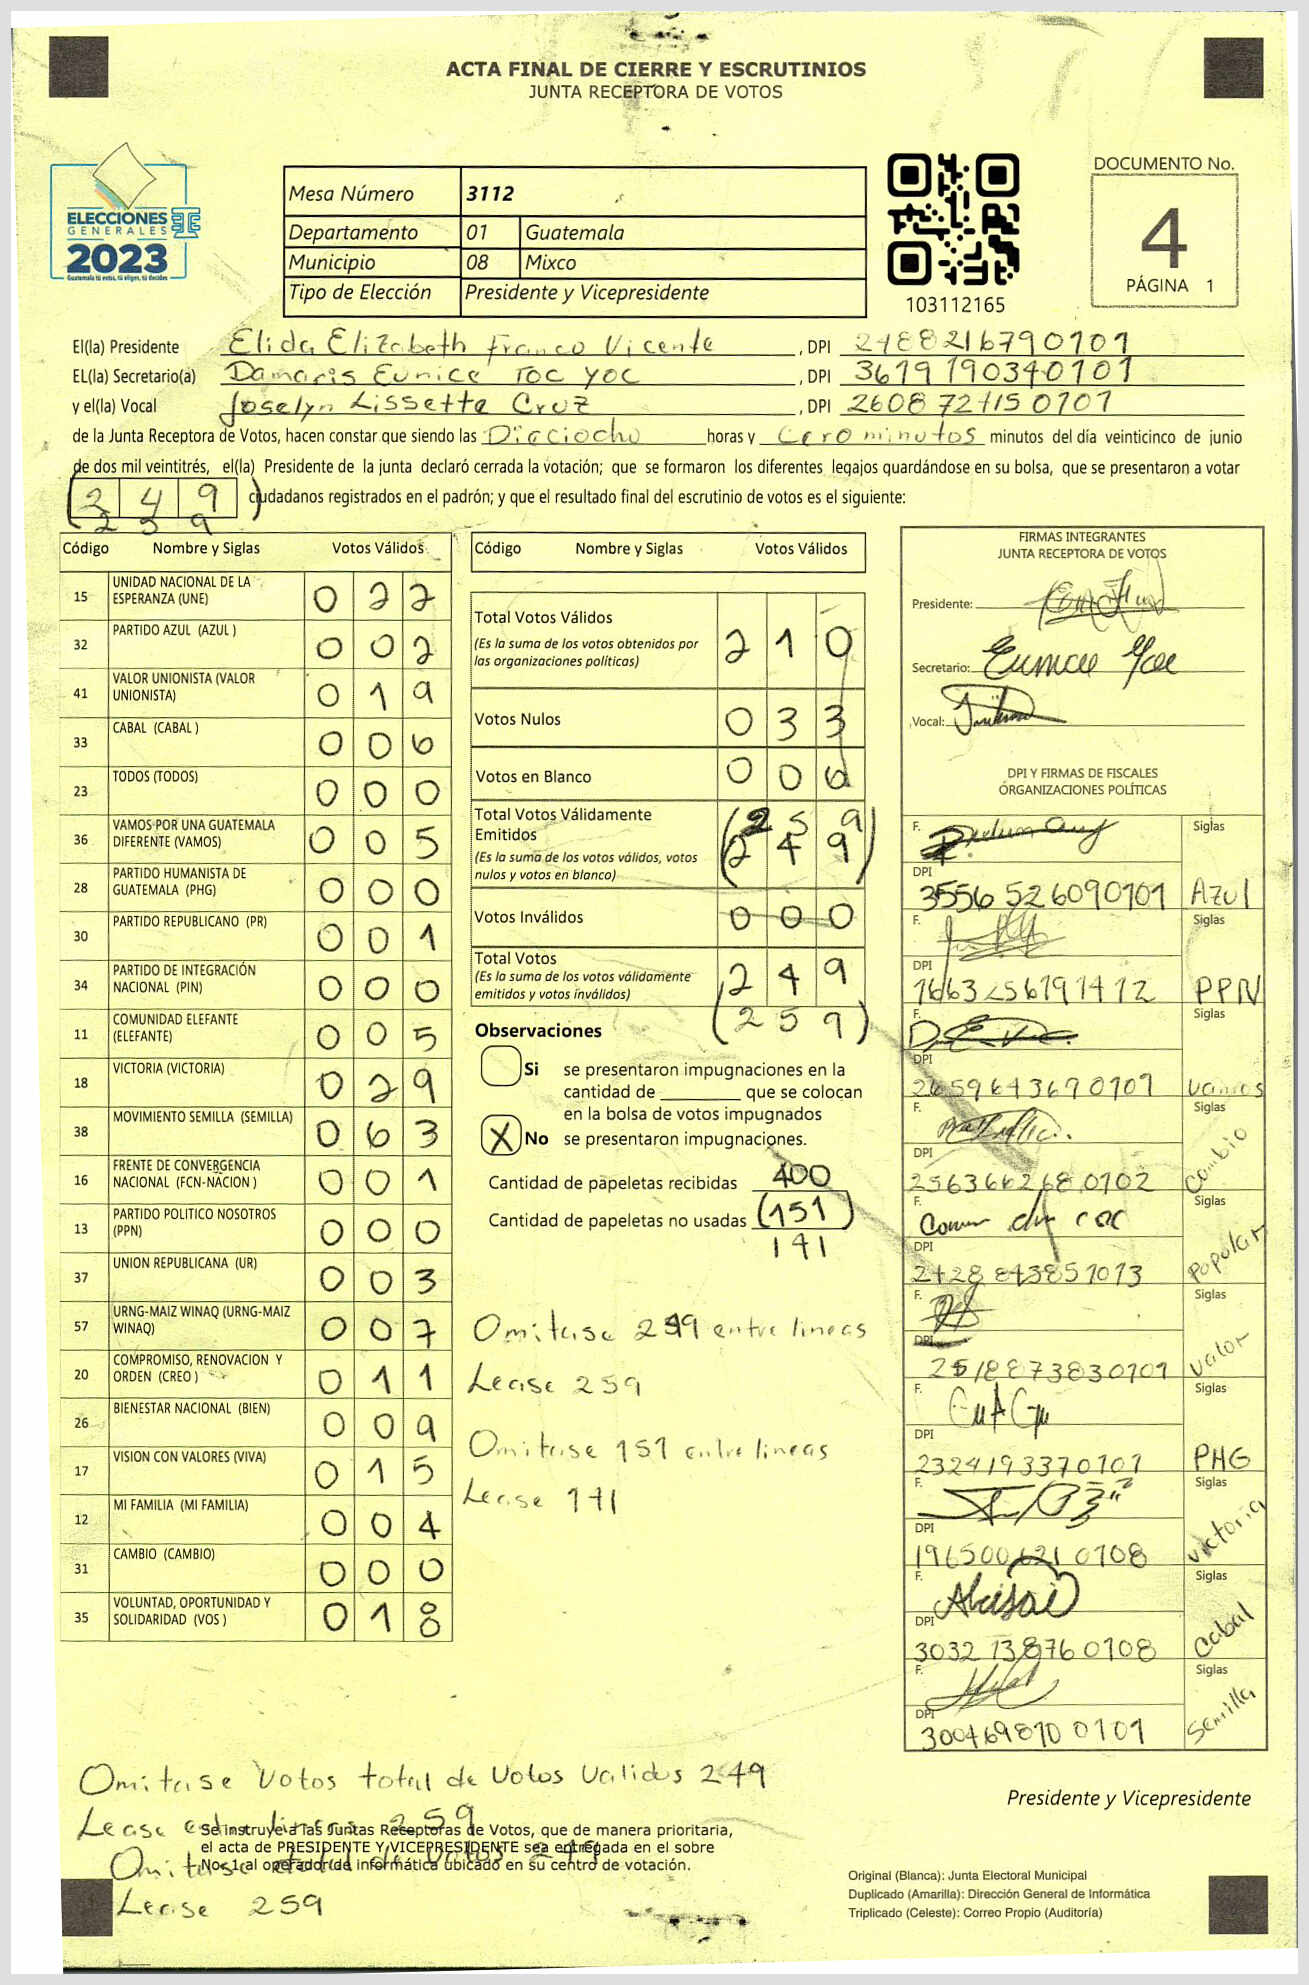 ACTA FINAL DE CIERRE Y ESCRUTINIOS
JUNTA RECEPTORA DE VOTOS
ELECCIONES
GENERALES
2023
Guatemala tú eres, tú eliges, tú decides
Mesa Número 3112
Departamento 01 Guatemala
Municipio 08 Mixco
Tipo de Elección Presidente y Vicepresidente
103112165
DOCUMENTO No.
4
PÁGINA 1
El(la) Presidente Elida Elizabeth Franco Vicente , DPI 2488216790101
EL(la) Secretario(a) Damaris Eunice Toc Yoc , DPI 3619190340101
y el(la) Vocal Joselyn Lissette Cruz , DPI 2608724150101
de la Junta Receptora de Votos, hacen constar que siendo las Dieciocho horas y Cero minutos minutos del día veinticinco de junio
de dos mil veintitrés, el(la) Presidente de la junta declaró cerrada la votación; que se formaron los diferentes legajos guardándose en su bolsa, que se presentaron a votar
(249) ciudadanos registrados en el padrón; y que el resultado final del escrutinio de votos es el siguiente:
259
Código Nombre y Siglas Votos Válidos
15 UNIDAD NACIONAL DE LA ESPERANZA (UNE) 022
32 PARTIDO AZUL (AZUL ) 002
41 VALOR UNIONISTA (VALOR UNIONISTA) 019
33 CABAL (CABAL ) 006
23 TODOS (TODOS) 000
36 VAMOS POR UNA GUATEMALA DIFERENTE (VAMOS) 005
28 PARTIDO HUMANISTA DE GUATEMALA (PHG) 000
30 PARTIDO REPUBLICANO (PR) 001
34 PARTIDO DE INTEGRACIÓN NACIONAL (PIN) 000
11 COMUNIDAD ELEFANTE (ELEFANTE) 005
18 VICTORIA (VICTORIA) 029
38 MOVIMIENTO SEMILLA (SEMILLA) 063
16 FRENTE DE CONVERGENCIA NACIONAL (FCN-NACION ) 001
13 PARTIDO POLITICO NOSOTROS (PPN) 000
37 UNION REPUBLICANA (UR) 003
57 URNG-MAIZ WINAQ (URNG-MAIZ WINAQ) 007
20 COMPROMISO, RENOVACION Y ORDEN (CREO ) 011
26 BIENESTAR NACIONAL (BIEN) 009
17 VISION CON VALORES (VIVA) 015
12 MI FAMILIA (MI FAMILIA) 004
31 CAMBIO (CAMBIO) 000
35 VOLUNTAD, OPORTUNIDAD Y SOLIDARIDAD (VOS ) 018
Código Nombre y Siglas Votos Válidos
Total Votos Válidos 210
(Es la suma de los votos obtenidos por las organizaciones políticas)
Votos Nulos 033
Votos en Blanco 006
Total Votos Válidamente Emitidos (259
(Es la suma de los votos válidos, votos nulos y votos en blanco) 249)
Votos Inválidos 000
Total Votos 249
(Es la suma de los votos válidamente emitidos y votos inválidos)
(259)
Observaciones
Si se presentaron impugnaciones en la
cantidad de ________ que se colocan
en la bolsa de votos impugnados
X No se presentaron impugnaciones.
Cantidad de papeletas recibidas 400
Cantidad de papeletas no usadas (151)
141
Omitase 249 entre lineas
Lease 259
Omitase 151 entre lineas
Lease 141
FIRMAS INTEGRANTES
JUNTA RECEPTORA DE VOTOS
Presidente:
Secretario:
Vocal:
DPI Y FIRMAS DE FISCALES
ORGANIZACIONES POLÍTICAS
F. Siglas
DPI 3556 526090101 Azul
F. Siglas
DPI PPN
F. Siglas
DPI 2659643670101 Vamos
F. Siglas
DPI 2563662680102 Cambio
F. Siglas
DPI 2428843851013 Popular
F. Siglas
DPI 2518873830101 Valor
F. Siglas
DPI 2324193370101 PHG
F. Siglas
DPI 1965006210108 Victoria
F. Siglas
DPI 3032138760108 Cabal
F. Siglas
DPI 3004698100101 Semilla
Presidente y Vicepresidente
Omitase Votos total de Votos Validos 249
Lease entre lineas 259
Se instruye a las Juntas Receptoras de Votos, que de manera prioritaria,
el acta de PRESIDENTE Y VICEPRESIDENTE sea entregada en el sobre
No. 1 al operador de informática ubicado en su centro de votación.
Omitase total de votos 249
Lease 259
Original (Blanca): Junta Electoral Municipal
Duplicado (Amarilla): Dirección General de Informática
Triplicado (Celeste): Correo Propio (Auditoría)